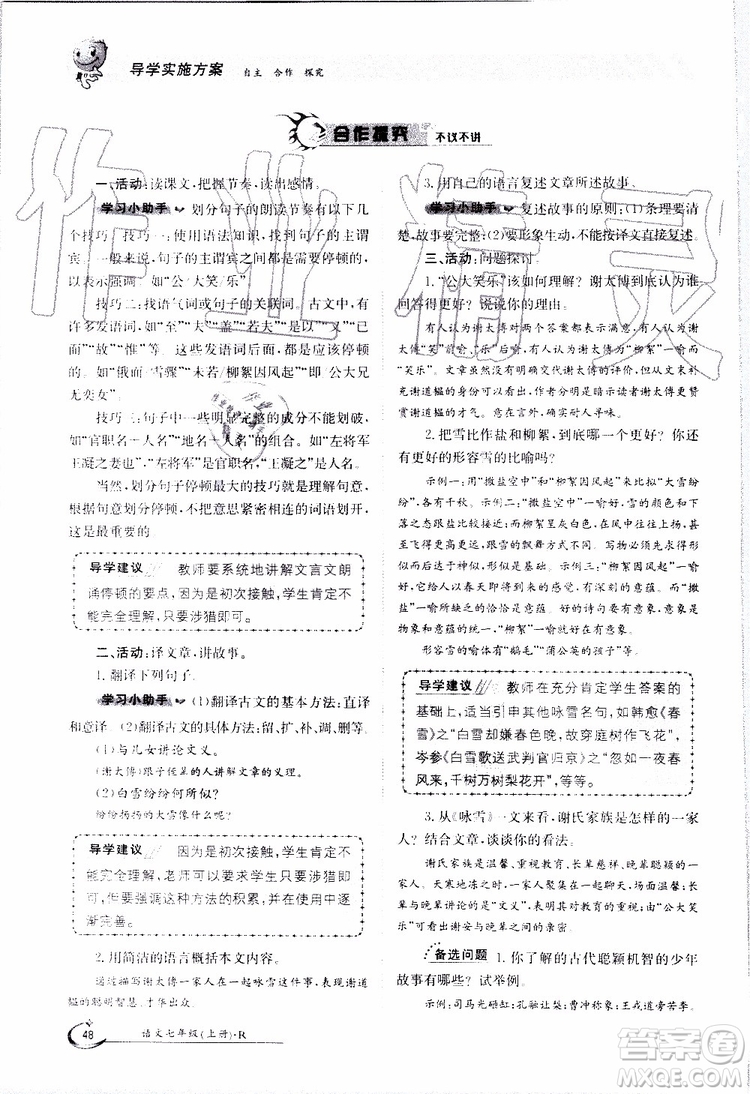 导学实施方案 自主 合作 探究
合作探究 不议不讲
一、活动:读课文,把握节奏,读出感情。
学习小助手 划分句子的朗读节奏有以下几
个技巧:技巧一:使用语法知识,找到句子的主谓
宾。一般来说,主语和谓语之间是需要停顿的,
以突出强调,例如“公大笑/乐”
技巧二:找语气词或句子的关联词。古文中,有
许多发语词,如“至”“夫”“盖”“若夫”“复”“又”“已
而”“故”“惟”等。这些发语词后面应该停顿的。
如“俄而/雪骤”“未若/柳絮因风起”“即/公大兄
无奕女”
技巧三:句子中一些明显完整的成分不能划破,
如“官职名+人名”“地名+人名”的组合。如“左将军
王凝之妻也”,“左将军”是官职名,“王凝之”是人名。
当然,划分句子停顿最大的技巧就是理解句意,
根据句意划分停顿,不要把意思紧密相连的词语划开,
这是最重要的。
导学建议 教师要系统地讲解文言文朗
诵停顿的要点,因为是初次接触,学生肯定不
能完全理解,只要涉猎即可。
二、活动:译文章,讲故事。
1.翻译下列句子。
学习小助手 (1)翻译古文的基本方法:直译
和意译。(2)翻译古文的具体方法:留、扩、补、调、删等。
(1)与儿女讲论文义。
(谢太傅)跟子侄辈的人讲解文章的义理。
(2)白雪纷纷何所似?
纷纷扬扬的大雪像什么呢?
导学建议 因为是初次接触,学生肯定不
能完全理解,老师可以要求学生只要涉猎即
可。但要强调这种方法的积累,并在使用中逐
渐完善。
2.用简洁的语言概括本文内容。
通过描写谢太傅一家人在一起咏雪的情景,表现谢道
韫的聪明智慧、才华出众。
48 语文七年级(上册)·R
3.用自己的语言复述文章所述故事。
学习小助手 复述故事的原则:(1)条理要清
楚,故事要完整;(2)要形象生动,不能按译文直接复述。
三、活动:问题探讨。
1.“公大笑乐”该如何理解?谢太傅到底认为谁
回答得更好?说说你的理由。
有人认为谢太傅对两个答案都大感满意。有人认为是谢
太傅“笑”前喻,“乐”后喻。“柳絮”一喻而
“笑乐”。文章结尾处有意交代了谢道韫的身份,文末的补
叙谢道韫的身份有深意,它暗示读者谢太傅更赞赏
赞赏谢道韫的才气。言有尽而意无穷,确实耐人寻味。
2.把雪比作盐和柳絮,你认为哪个更好?你还
有更好的形容雪的比喻吗?
示例一:用“撒盐空中”“柳絮因风起”来比拟“大雪纷
纷”,各有千秋。示例二:“撒盐空中”一喻好,雪的颜色和下落
之态都跟盐比较接近;而柳絮呈灰白色,在风中往往上
扬,甚至飞得很高很远,跟雪的飘舞方式不同。写物必须
形似而后才能达于神似,形似是基础。示例三:“柳絮因风起”一
喻好,它给人以春天即将到来的感觉,有深刻的意蕴。而“撒
盐”一喻所缺乏的恰恰是意蕴。好的诗句要有意象,意象是
物象和意蕴的统一。“柳絮”一喻好就好在有意象。
形容雪的喻体有“鹅毛”“蒲公英的孩子”等。
导学建议 教师在充分肯定学生答案的
基础上,适当引申其他咏雪名句,如韩愈《春
雪》“白雪却嫌春色晚,故穿庭树作飞花”,
岑参《白雪歌送武判官归京》“忽如一夜春
风来,千树万树梨花开”,等等。
3.从《咏雪》一文来看,谢氏家族是怎样的一家
人?结合文章,谈谈你的看法。
谢氏家族是温馨、重视教育、长辈慈祥、晚辈聪颖的一
家人。天寒地冻之时,一家人却聚集在一起,显得温馨;“与
儿女讲论文义”表明其对教育的重视和喜爱;“公大笑
乐”写出了谢安与晚辈之间的亲密。
备选问题 1.你了解的古代聪颖机智的少年
故事有哪些?试举例。
示例:司马光砸缸;孔融让梨;曹冲称象;王戎道旁苦李。
作业精灵
MXQE.COM